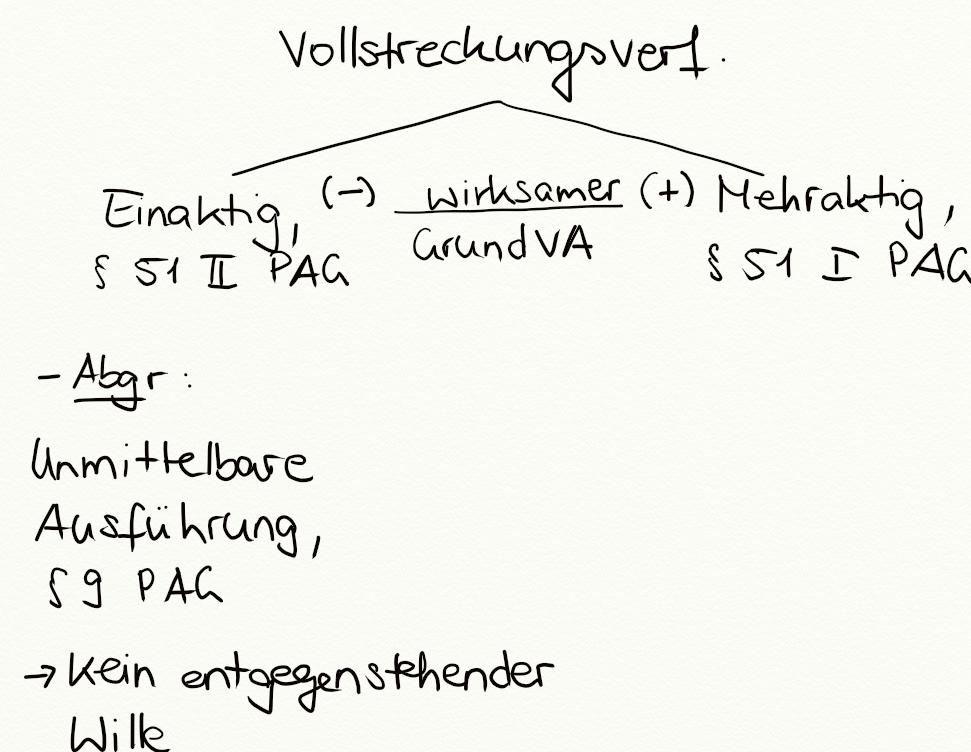 Vollstreckungsverf.
Einaktig, (-) wirksamer (+) Mehraktig,
§ 51 II PAG GrundVA § 51 I PAG
- Abgr:
Unmittelbare
Ausführung,
§ 9 PAG
→ Kein entgegenstehender
Wille